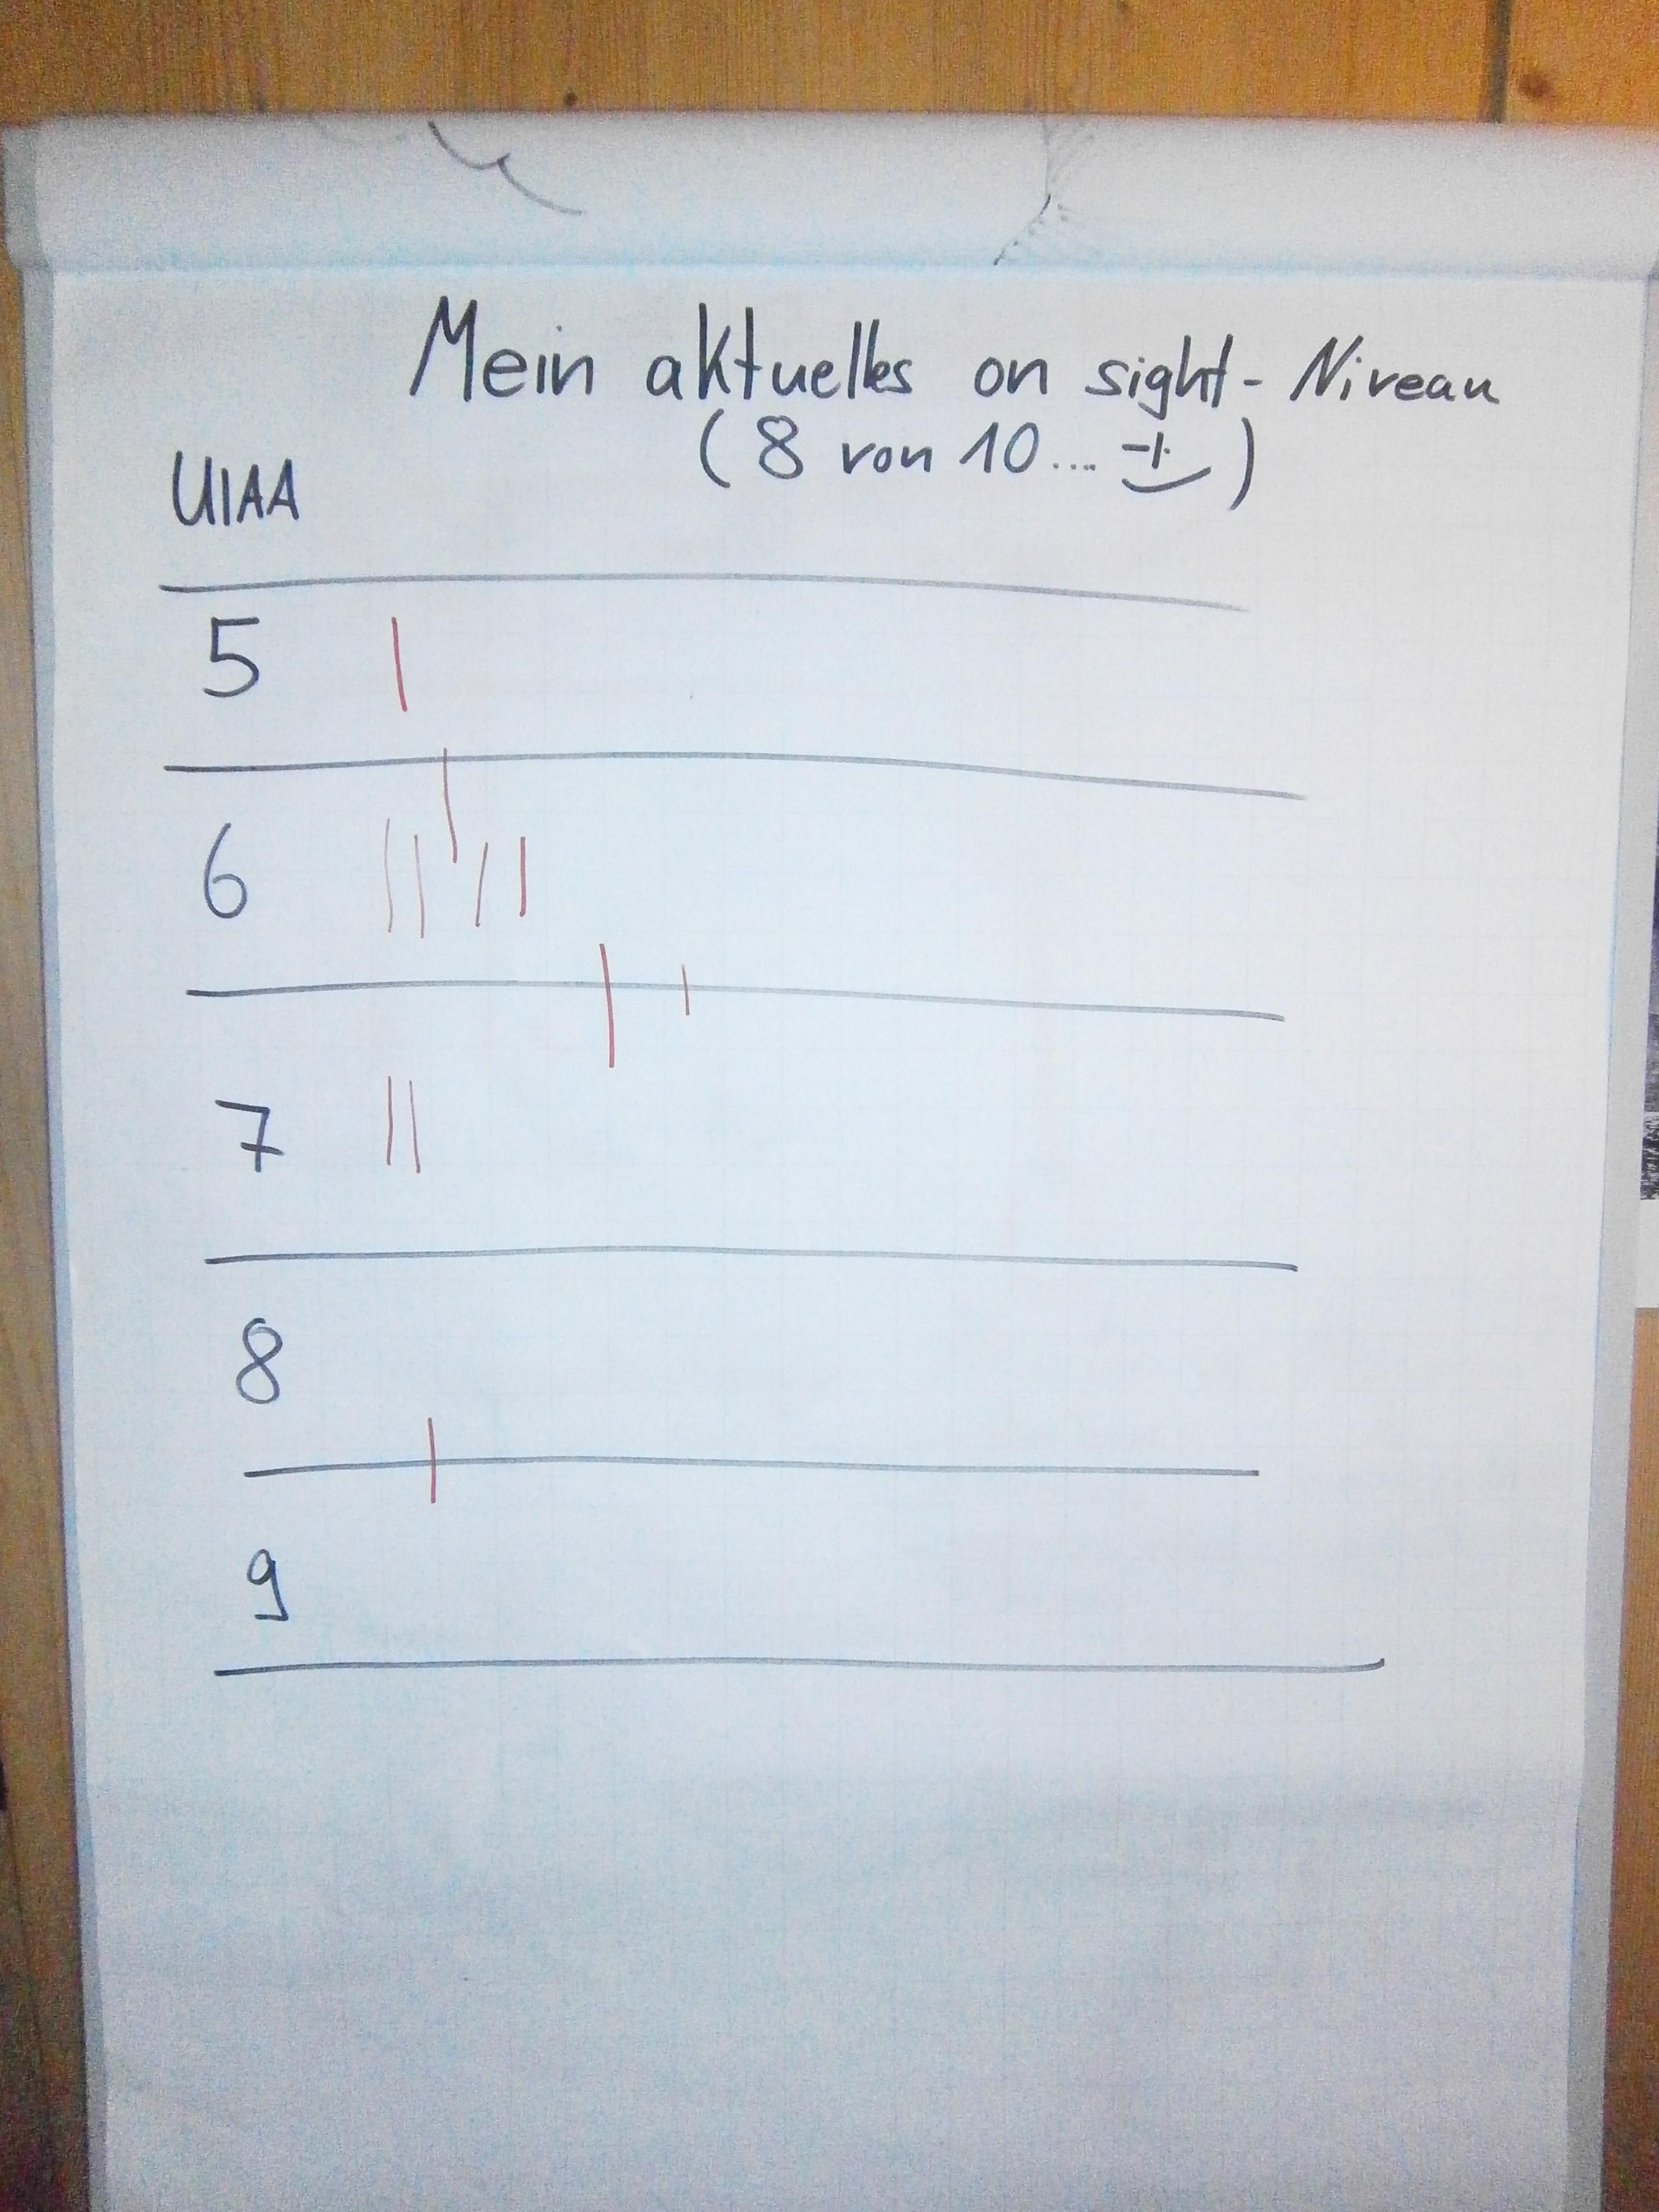 Mein aktuelles on sight-Niveau
(8 von 10....)
UIAA
5
6
7
8
9